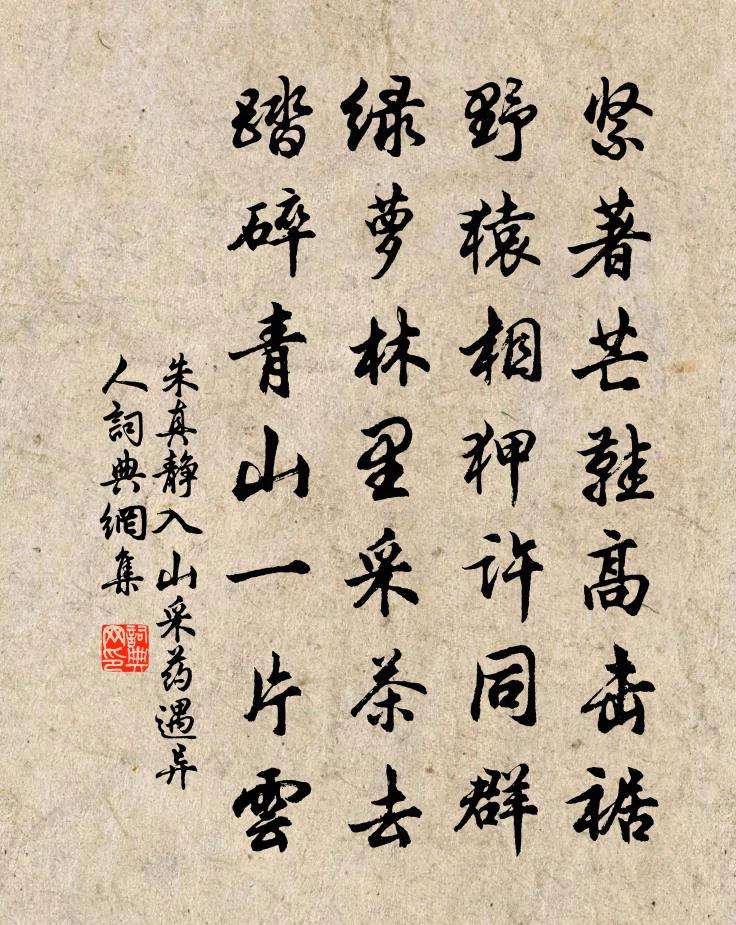 紧著芒鞋高击裾
野猿相狎许同群
绿萝林里采茶去
踏碎青山一片雲
朱真静入山采药遇异
人詞典網集
詞典
网印